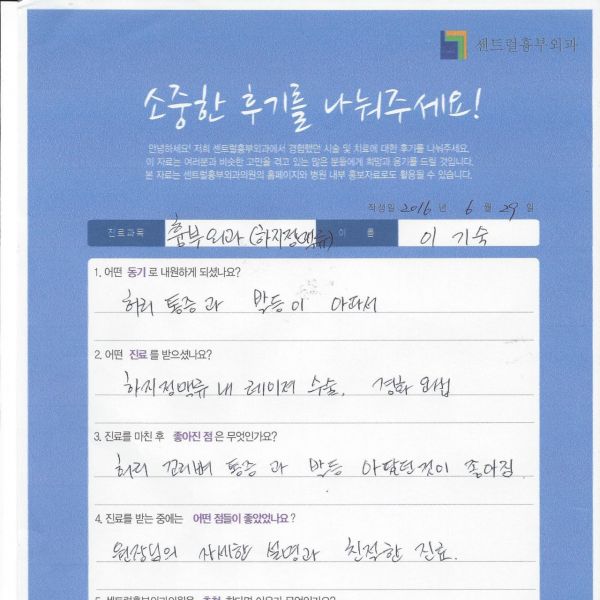 센트럴흉부외과
소중한 후기를 나눠주세요!
안녕하세요! 저희 센트럴흉부외과에서 경험했던 시술 및 치료에 대한 후기를 나눠주세요.
이 자료는 여러분과 비슷한 고민을 겪고 있는 많은 분들에게 희망과 용기를 드릴 것입니다.
본 자료는 센트럴흉부외과의원의 홈페이지와 병원 내부 홍보자료로도 활용될 수 있습니다.
작성일 2016 년 6 월 29 일
진료과목 흉부외과(하지정맥류) 이 름 이 기숙
1. 어떤 동기로 내원하게 되셨나요?
허리 통증과 발등이 아파서
2. 어떤 진료를 받으셨나요?
하지정맥류 내 레이져 수술, 경화 요법
3. 진료를 마친 후 좋아진 점은 무엇인가요?
허리 꼬리뼈 통증과 발등 아팠던것이 좋아짐
4. 진료를 받는 중에는 어떤 점들이 좋았었나요?
원장님의 자세한 설명과 친절한 진료.